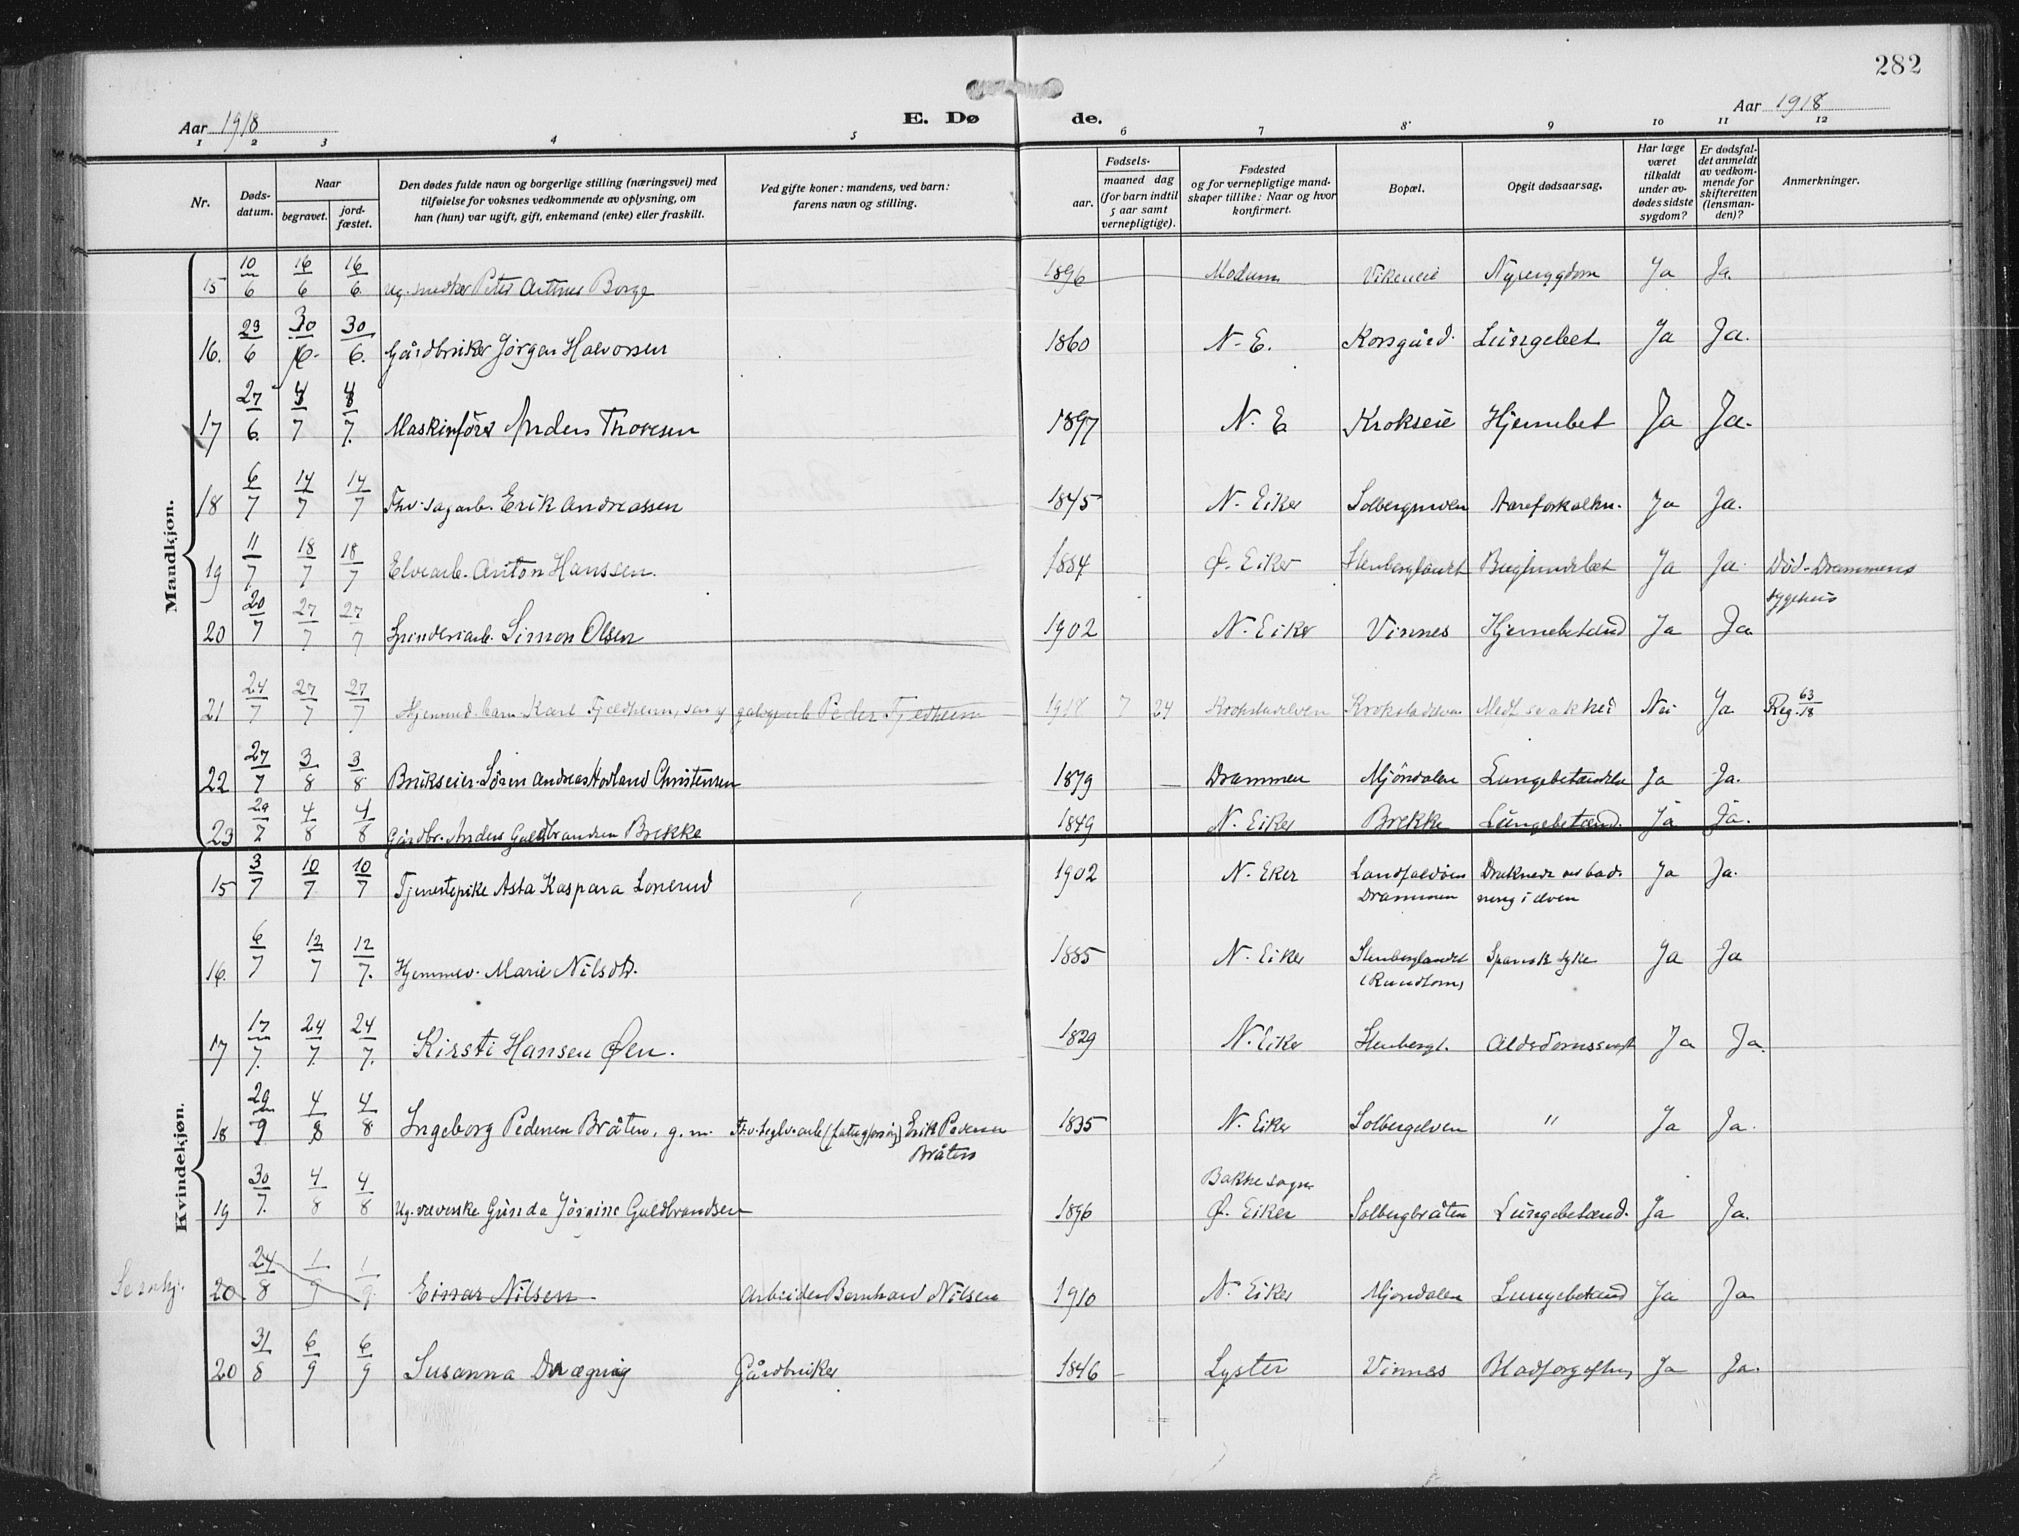 282
Aar 1918
E. Dø
de.
Aar 1918
1 2 3 4 5 6 7 8 9 10 11 12
Nr.
Døds-
datum.
Naar
begravet.
jord-
fæstet.
Den dødes fulde navn og borgerlige stilling (næringsvei) med
tilføielse for voksnes vedkommende av oplysning, om
han (hun) var ugift, gift, enkemand (enke) eller fraskilt.
Ved gifte koner: mandens, ved barn:
farens navn og stilling.
Fødsels-
aar.
maaned dag
(for barn indtil
5 aar samt
vernepligtige).
Fødested
og for vernepligtige mand-
skaper tillike: Naar og hvor
konfirmert.
Bopæl.
Opgit dødsaarsag.
Har læge
været
tilkaldt
under av-
dødes sidste
sygdom?
Er dødsfal-
det anmeldt
av vedkom-
mende for
skifteretten
(lensman-
den)?
Anmerkninger.
Mandkjøn.
15 10/6 16/6 16/6 Ug. snedker Peter Borge 1896 Modum Vikeneie Ja Ja
16. 23/6 30/6 30/6. Gårdbruker Jørgen Halvorsen 1860 N. E. Korsgård. Lungebet Ja Ja.
17 27/6. 4/7 4/7. Maskinfører Anders Thoresen 1897 N. E Krokseie Hjernebet Ja Ja.
18 6/7 14/7 14/7 Fhv. sagarb. Erik Andreassen 1845 N. Eiker Aareforkalkn. Ja Ja.
19 11/7 18/7 18/7 Elvearb. Anton Hanssen. 1884 Ø. Eiker Ja Ja. Død - Drammens
sygehus
20 20/7 27/7 27/7 Spinderiarb. Simon Olsen 1902 N. Eiker Vinnes Hjernebetænd Ja Ja
21 24/7 27/7 27/7 Hjemmed. barn Karl Fjeldheim, søn af Peder Fjeldheim 1918 7 24 Krokstadelven Krokstadelven Medf. svakhet Nei Ja Reg. 63/18
22 27/7 3/8 3/8 Brukseier Søren Andreas Hovland Christensen 1879 — Drammen Mjøndalen Lungebetændelse Ja Ja.
23 29/7 4/8 4/8 Gårdbr. Anders Guldbrandsen Brekke 1849 N. Eiker Brekke Lungebetænd. Ja Ja.
Kvindekjøn.
15 3/7 10/7 10/7 Tjenestepike Asta Kaspara Lonerud 1902 N. Eker Landfaldøen
Drammen Druknede ved bad-
ning i elven Ja Ja.
16. 6/7 12/7 12/7. Hjemmev. Marie Nilsdtr. 1885 N. Eiker Stenberglandet
(Rundtom) Spansk syke Ja Ja
17 17/7. 24/7. 24/7. Kirsti Hansen Øen. 1829 N. Eiker Stenbergl. Alderdomssvagh Ja Ja.
18 29/7 4/8 4/8 Ingeborg Pedersen Bråten, g. m. Erik Pedersen
Bråten 1835 N. Eiker Solbergelven " Ja Ja.
19 30/7. 4/8 4/8 Ug. væverske Gunda Jørgine Guldbrandsen 1896 Bakke sogn
Ø. Eiker Solbergbråten Lungebetænd. Ja Ja.
20 24/8 1/9 1/9 Einar Nilsen Arbeider Bernhard Nilsen 1910 N. Eiker Mjøndalen Lungebetænd Ja Ja
20 31/8 6/9 6/9 Susanna Gårdbruker 1846 - Lyster Vinnes Blodforgiftn. Ja Ja.